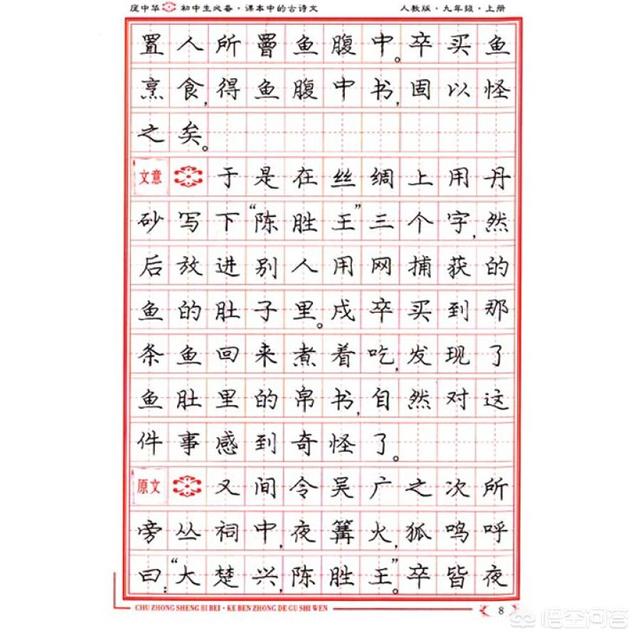 庞中华 初中生必备·课本中的古诗文 人教版·九年级·上册
置人所罾鱼腹中。卒买鱼
烹食,得鱼腹中书,固以怪
之矣。
文意 于是在丝绸上用丹
砂写下“陈胜王”三个字,然
后放进别人用网捕获的
鱼的肚子里。戍卒买到那
条鱼回来煮着吃,发现了
鱼肚里的帛书,自然对这
件事感到奇怪了。
原文 又间令吴广之次所
旁丛祠中,夜篝火,狐鸣呼
曰:“大楚兴,陈胜王”。卒皆夜
CHU ZHONG SHENG BI BEI·KE BEN ZHONG DE GU SHI WEN 8
悟空问答